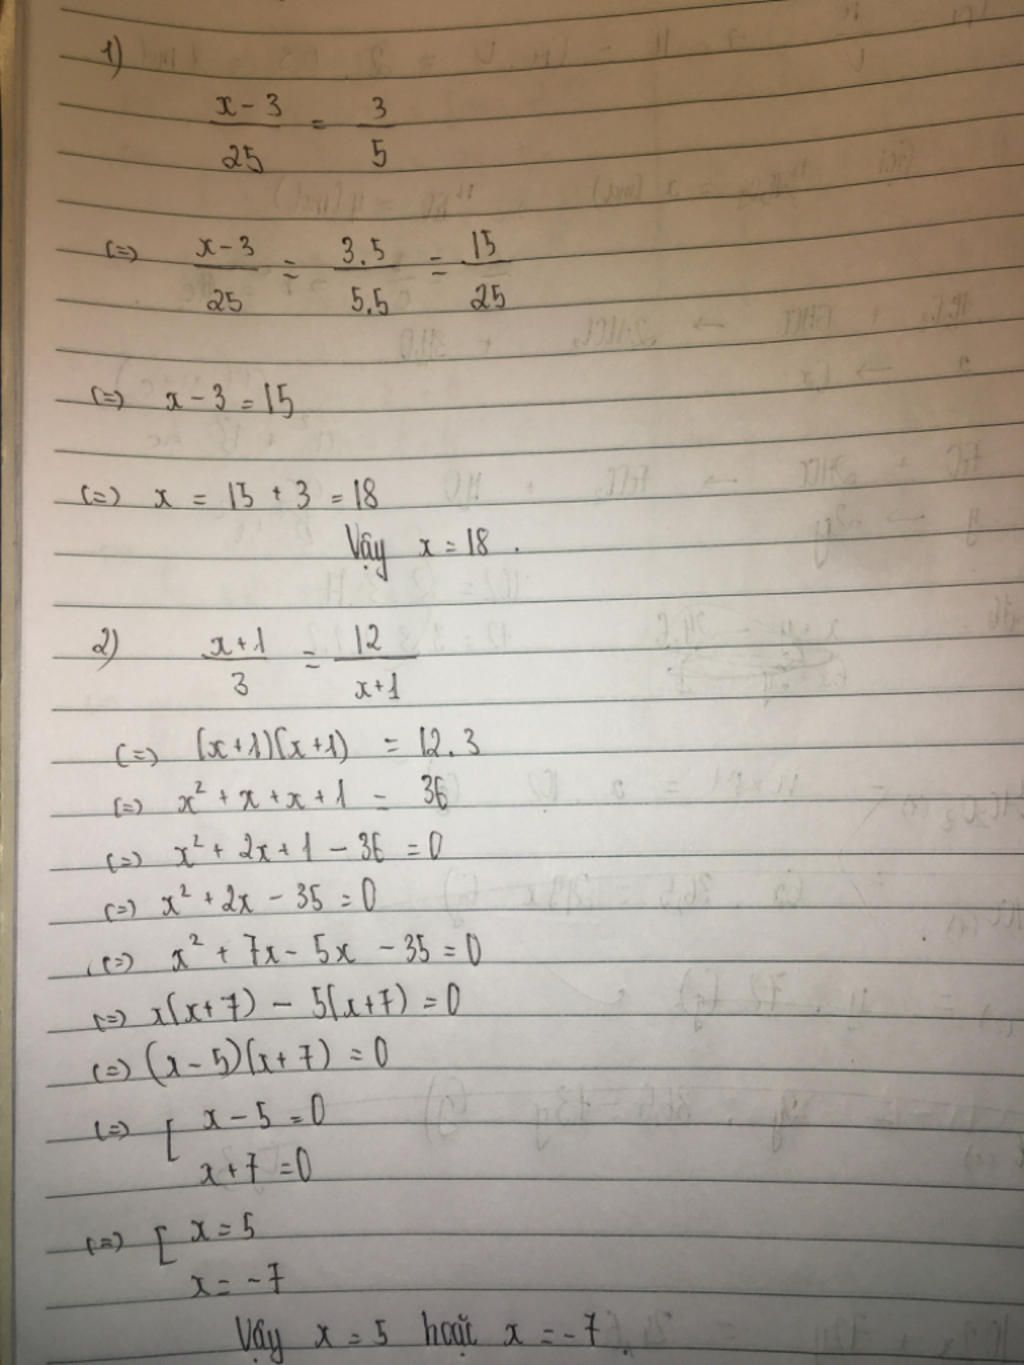 1)
x - 3 / 25 = 3 / 5
(=) x - 3 / 25 = 3.5 / 5.5 = 15 / 25
(=) x - 3 = 15
(=) x = 15 + 3 = 18
Vậy x = 18 .
2) x+1 / 3 = 12 / x+1
(=) (x+1)(x+1) = 12.3
(=) x² + x + x + 1 = 36
(=) x² + 2x + 1 - 36 = 0
(=) x² + 2x - 35 = 0
(=) x² + 7x - 5x - 35 = 0
(=) x(x+7) - 5(x+7) = 0
(=) (x-5)(x+7) = 0
(=) [ x - 5 = 0
x + 7 = 0
(=) [ x = 5
x = -7
Vậy x = 5 hoặc x = -7 .